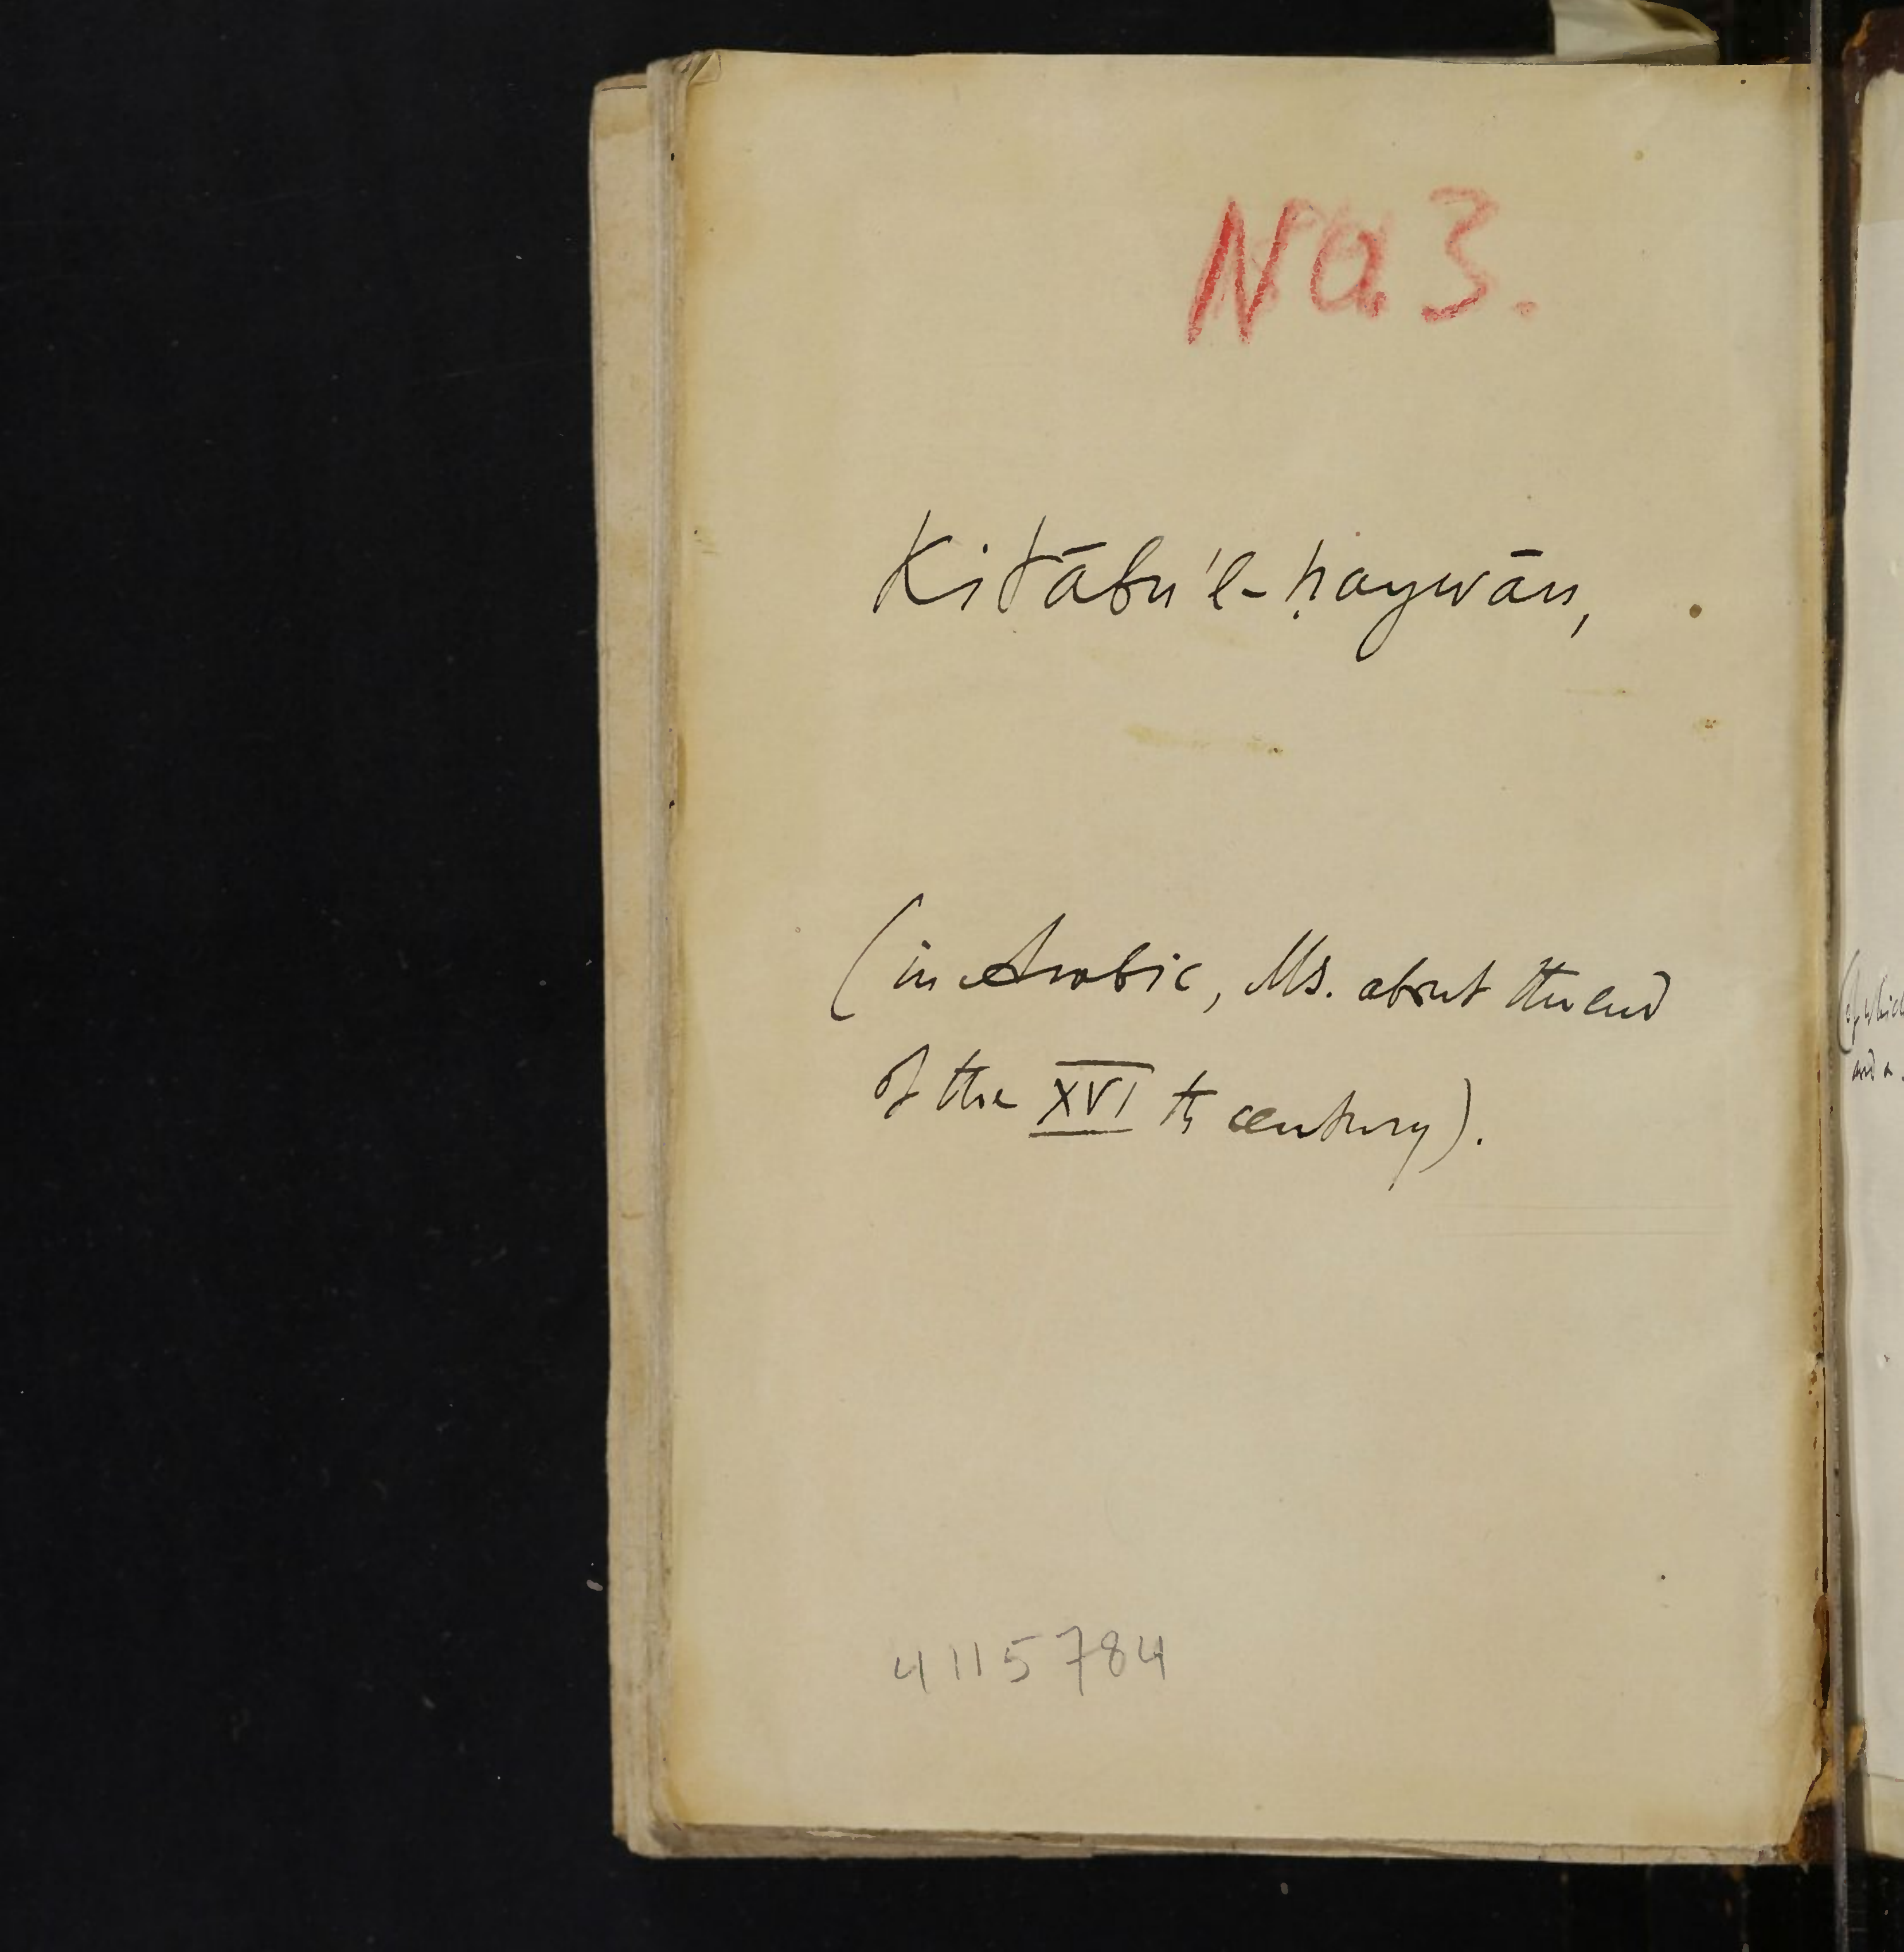 No 3.
Kitābu'l-ḥaywān,
(in Arabic, Ms. about the end
of the XVI th century).
4115784
(of which
and a